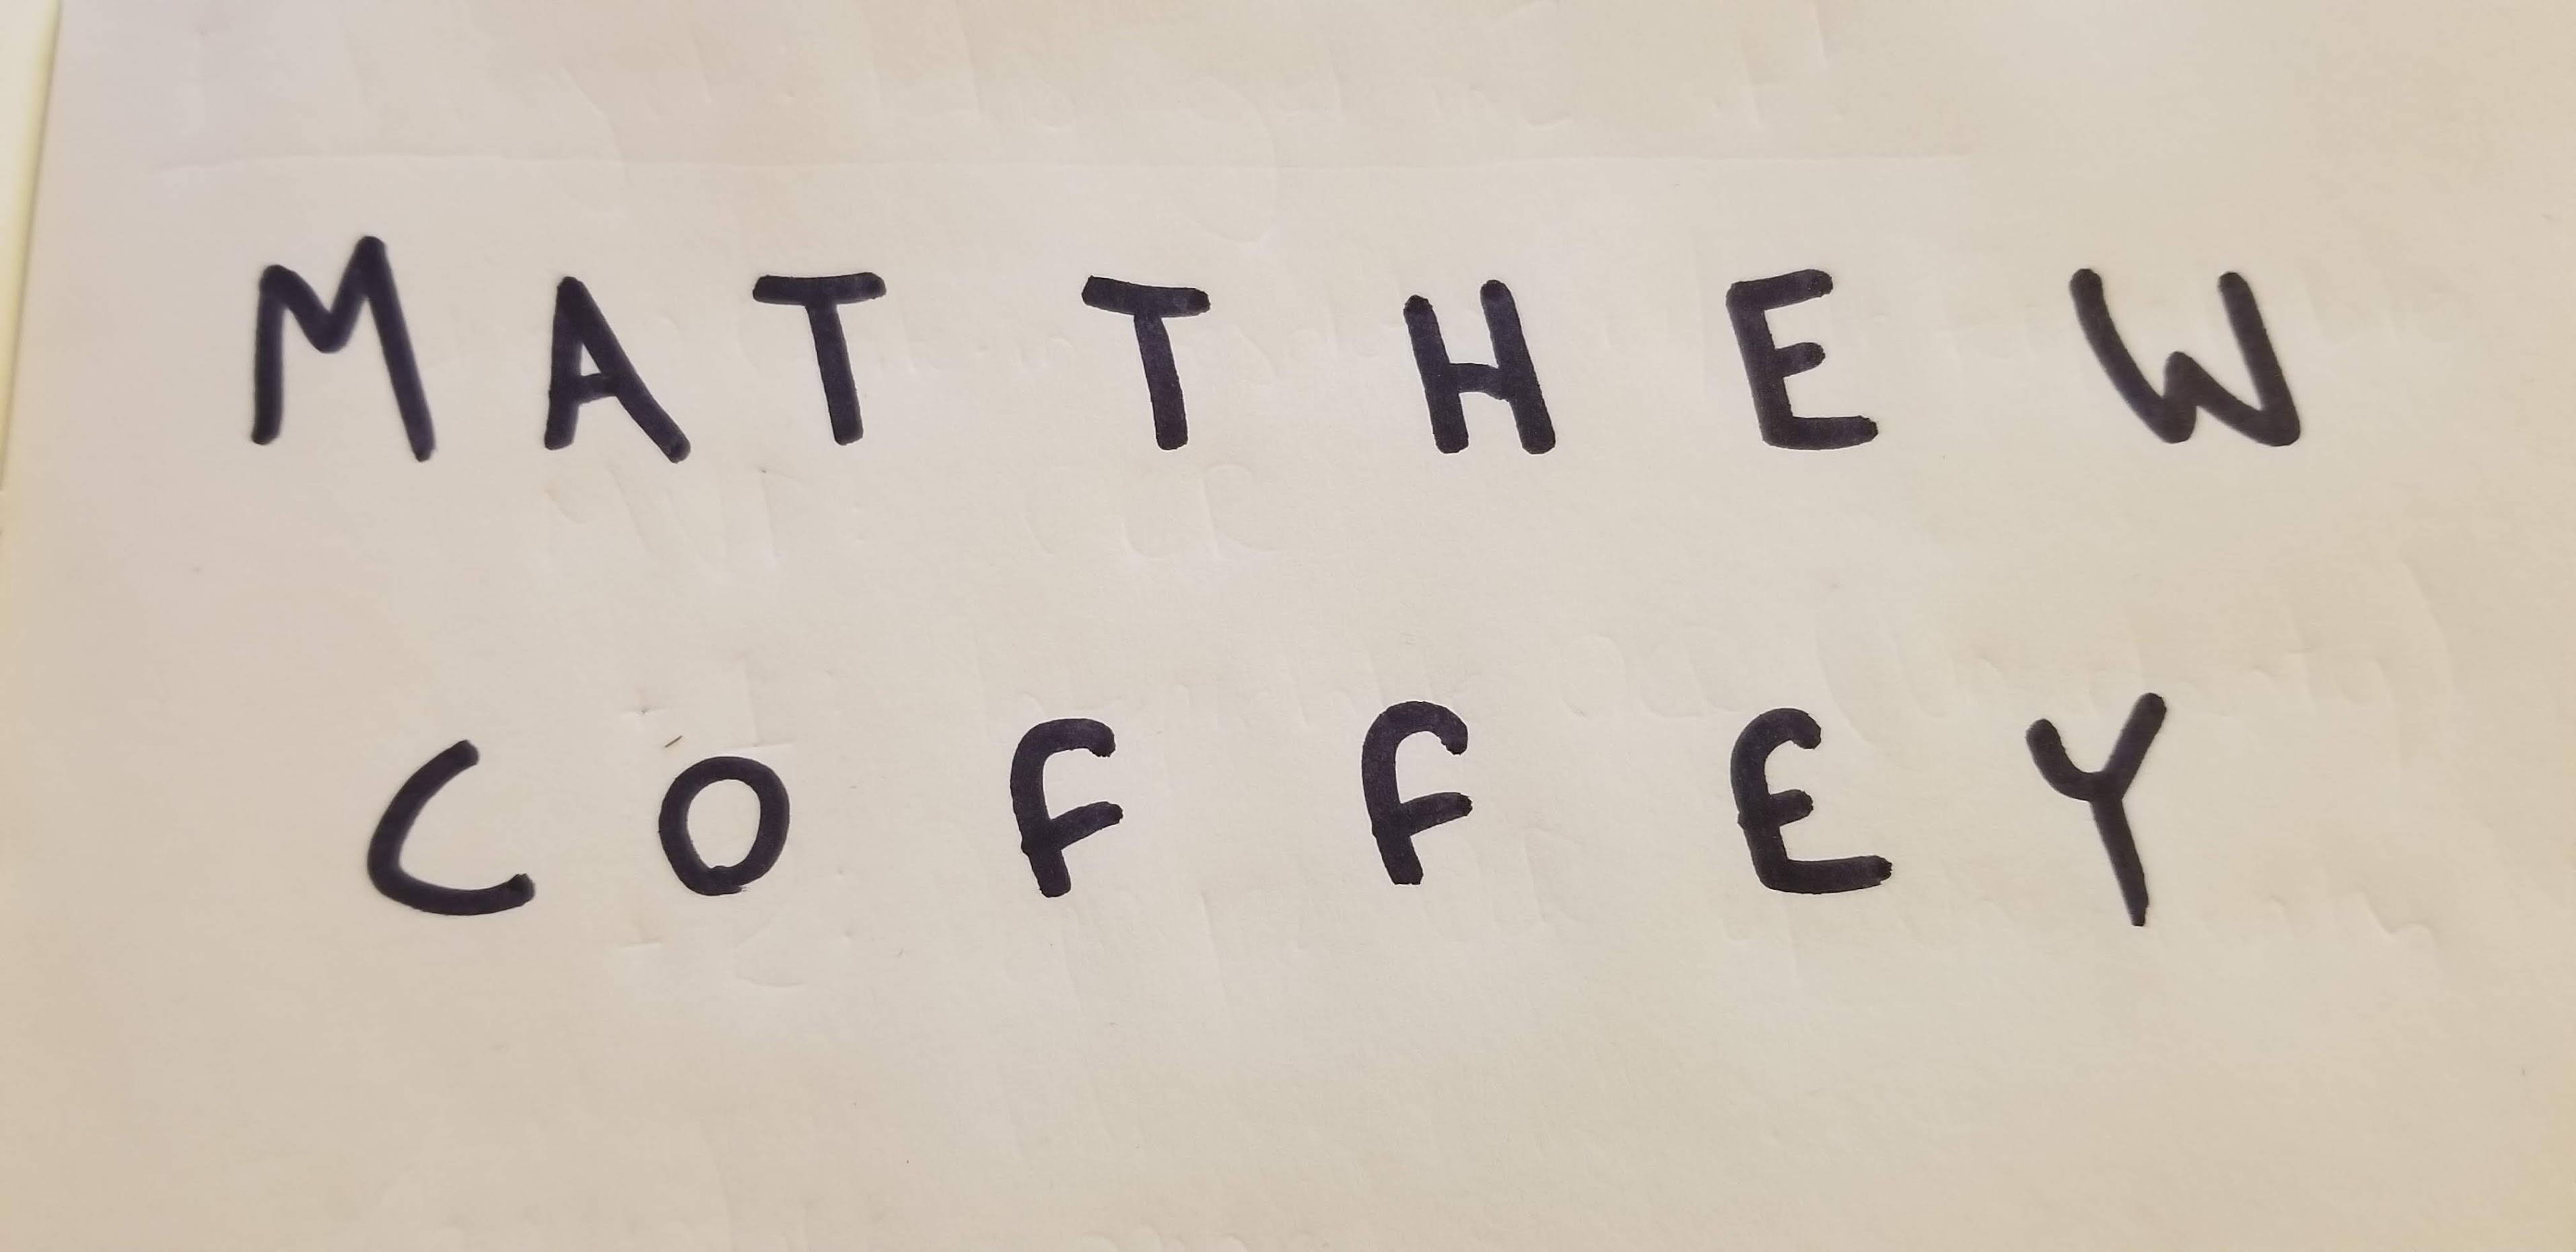 MATTHEW
COFFEY